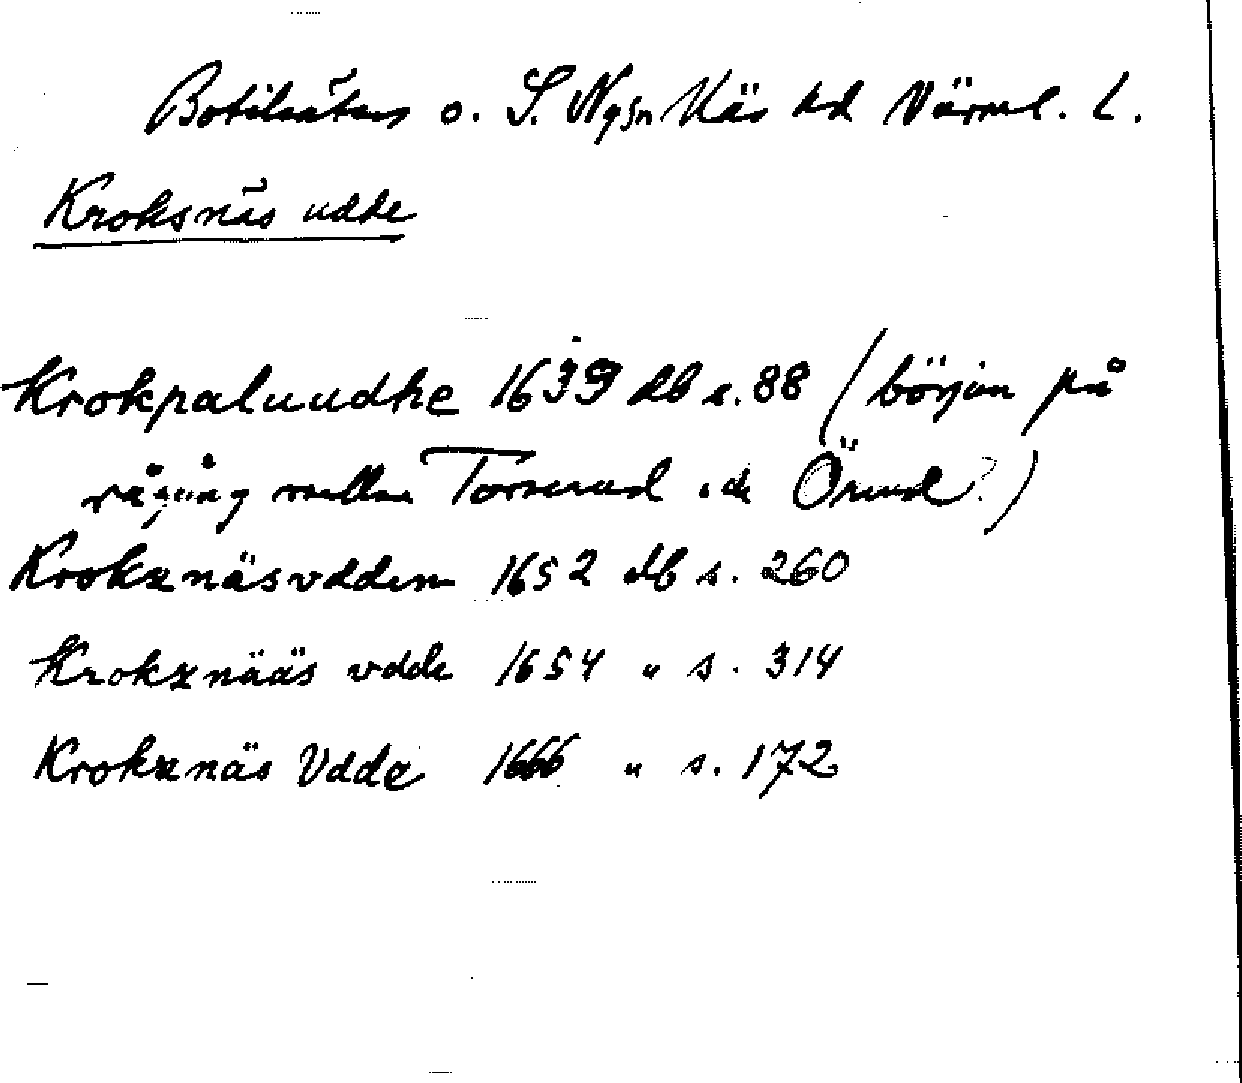 Botilsäter o. S. Ny sn Näs hd Värml. L.
Kroksnäs udde
Krokpaluudhe 1639 db s. 88 (början på
rågång mellan Torserud och Örud?)
Krokznäsvdden 1652 db s. 260
Krokznääs vdde 1654 " s. 314
Krokznäs Vdde 1666 " s. 172